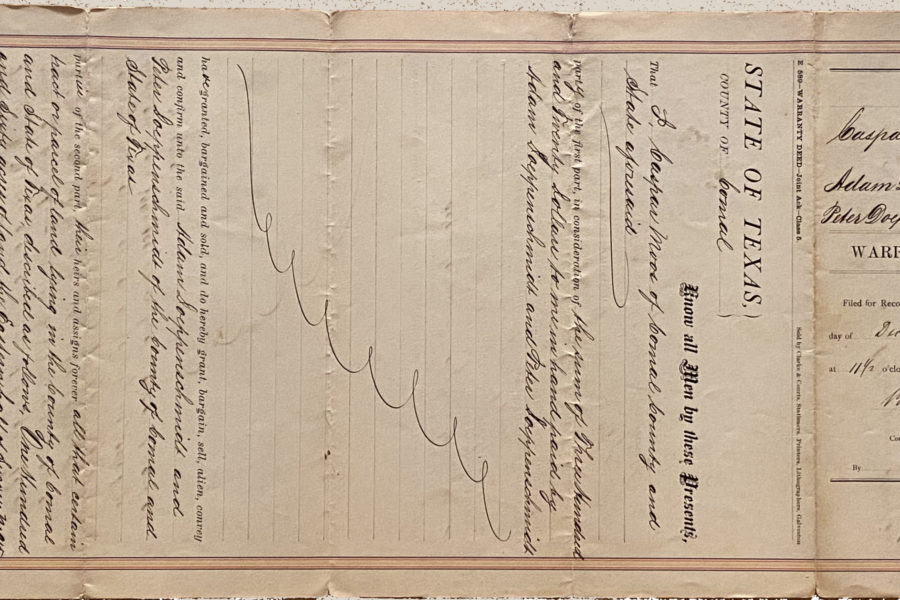 E 580—WARRANTY DEED—Joint Ack—Class 5. Sold by Clarke & Courts, Stationers, Printers, Lithographers, Galveston
STATE OF TEXAS,
COUNTY OF Comal
Know all Men by these Presents,
That I. Caspar Moos of Comal County and
State aforesaid
party of the first part, in consideration of the sum of Three hundred
and Twenty Dollars to me in hand paid by
Adam Doeppenschmidt and Peter Doeppenschmidt
have granted, bargained and sold, and do hereby grant, bargain, sell, alien, convey
and confirm unto the said Adam Doeppenschmidt and
Peter Doeppenschmidt of the County of Comal and
State of Texas
parties of the second part, their heirs and assigns forever all that certain
tract or parcel of land lying in the County of Comal
and State of Texas discribed as follows, One Hundred
and Sixty acres of land
Caspa
Adam
Peter Doep
WARR
Filed for Reco
day of Dec
at 11 1/2 o'clo
Co
By